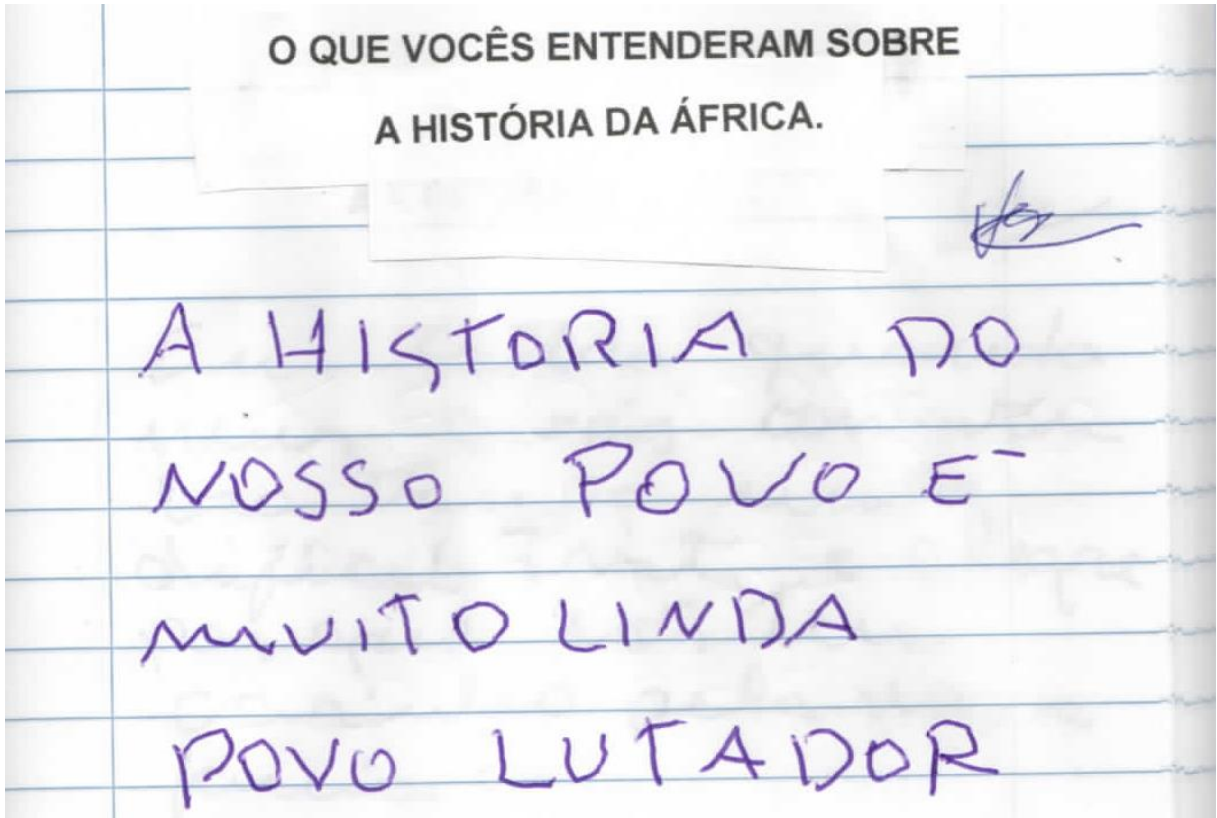 O QUE VOCÊS ENTENDERAM SOBRE
A HISTÓRIA DA ÁFRICA.
A HISTORIA DO
NOSSO POVO E-
MUITO LINDA
POVO LUTADOR